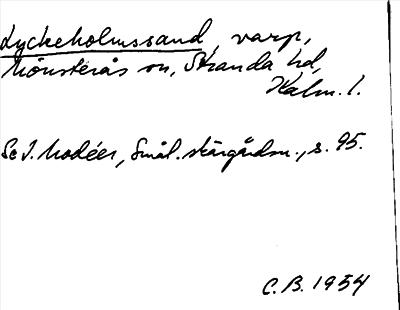 Lyckeholmssand, varp,
Mönsterås sn, Stranda hd,
Kalm. l.
Se I. Modéer, Smål. skärgårdsn., s. 95.
C.B. 1954